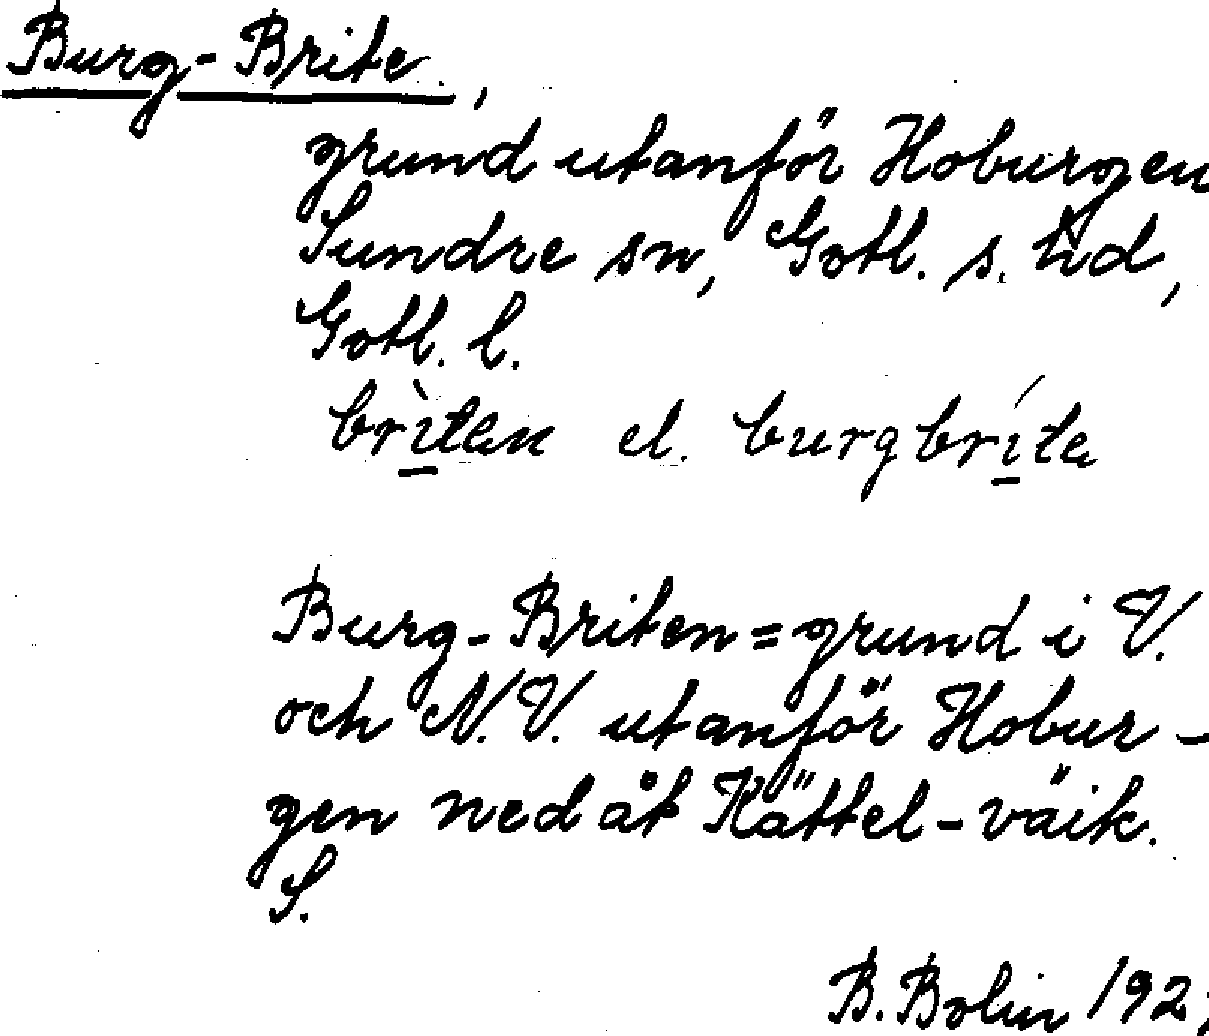 Burg-Brite.,
grund utanför Hoburgen
Sundre sn, Gotl. s. hd,
Gotl. l.
brìten el. burgbríte
Burg-Briten = grund i V.
och N.V. utanför Hobur-
gen nedåt Kättel-väik.
S.
B. Bolin 192